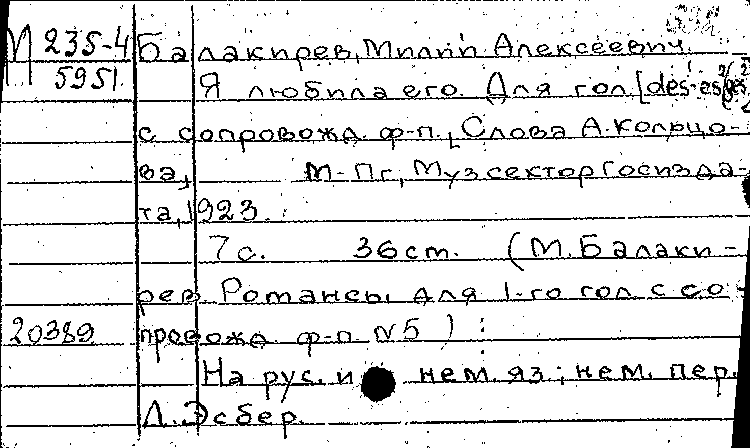 М 235-4
5951
Балакирев, Милий Алексеевич.
Я любила его. Для гол [des¹-es
с сопровожд. ф-п., Слова А. Кольцо-
ва, М-Пг, Музсектор Госизда-
та, 1923.
7 с. 36 cm. (М. Балаки-
рев Романсы для 1-го гол с со-
20389 провожд. ф-п. N5)
На рус. и нем. яз; нем. пер.
Л. Эсбер.